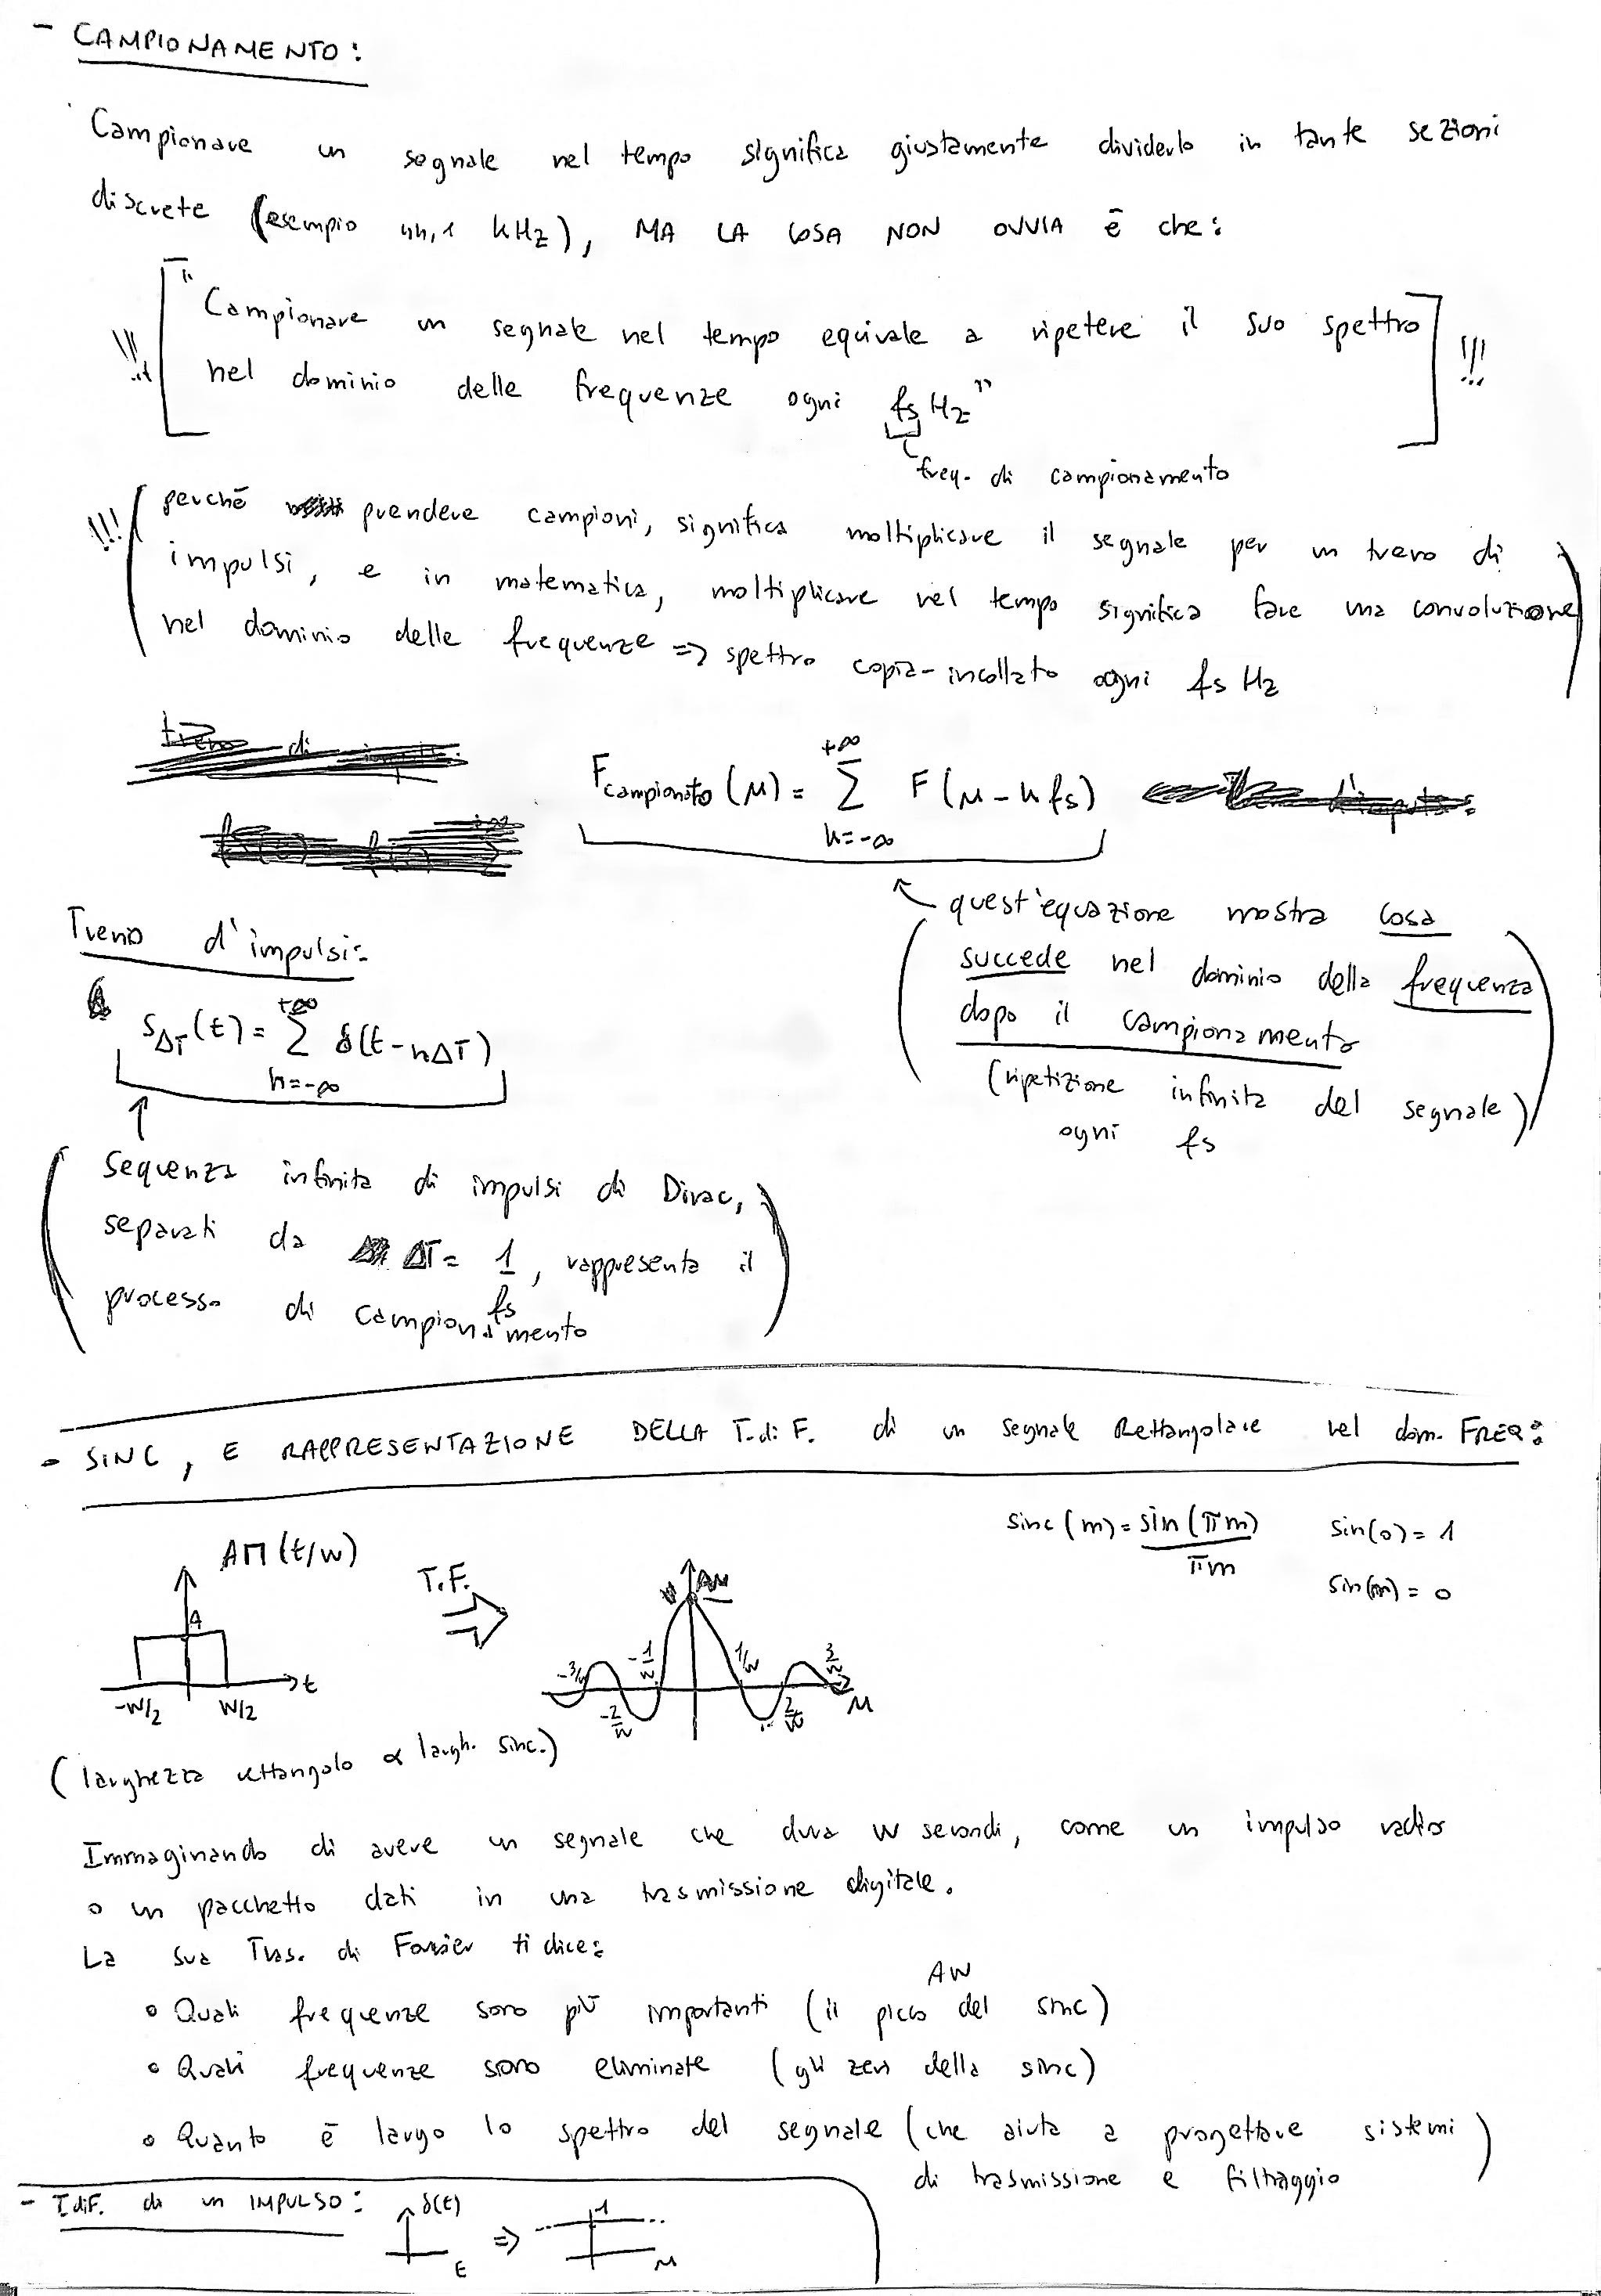 - CAMPIONAMENTO:
Campionare un segnale nel tempo significa giustamente dividerlo in tante sezioni
discrete (esempio 44,1 kHz), MA LA COSA NON OVVIA è che:
!!! "Campionare un segnale nel tempo equivale a ripetere il suo spettro !!!
nel dominio delle frequenze ogni fs Hz"
freq. di campionamento
!!! (perché prendere campioni, significa moltiplicare il segnale per un treno di
impulsi, e in matematica, moltiplicare nel tempo significa fare una convoluzione
nel dominio delle frequenze => spettro copia-incollato ogni fs Hz)
F campionato (μ) = Σ F(μ - n fs)
+∞
n=-∞
quest'equazione mostra cosa
succede nel dominio della frequenza
dopo il campionamento
(ripetizione infinita del segnale)
ogni fs
Treno d'impulsi:
S ΔT (t) = Σ δ(t - nΔT)
+∞
n=-∞
(Sequenza infinita di impulsi di Dirac,
separati da ΔT = 1/fs, rappresenta il
processo di campionamento)
- SINC, E RAPPRESENTAZIONE DELLA T. di F. di un segnale Rettangolare nel dom. FREQ:
AΠ(t/w)
A
-W/2 W/2 t
T.F.
AW
-3/w -2/w -1/w 1/w 2/w 3/w μ
sinc(m) = sin(πm)/πm sin(0) = 1
sin(m) = 0
(larghezza rettangolo ∝ largh. sinc.)
Immaginando di avere un segnale che dura W secondi, come un impulso radio
o un pacchetto dati in una trasmissione digitale.
La sua Tras. di Fourier ti dice:
• Quali frequenze sono più importanti (il picco AW del sinc)
• Quali frequenze sono eliminate (gli zeri della sinc)
• Quanto è largo lo spettro del segnale (che aiuta a progettare sistemi
di trasmissione e filtraggio)
- T.diF. di un IMPULSO: δ(t) t => 1 μ